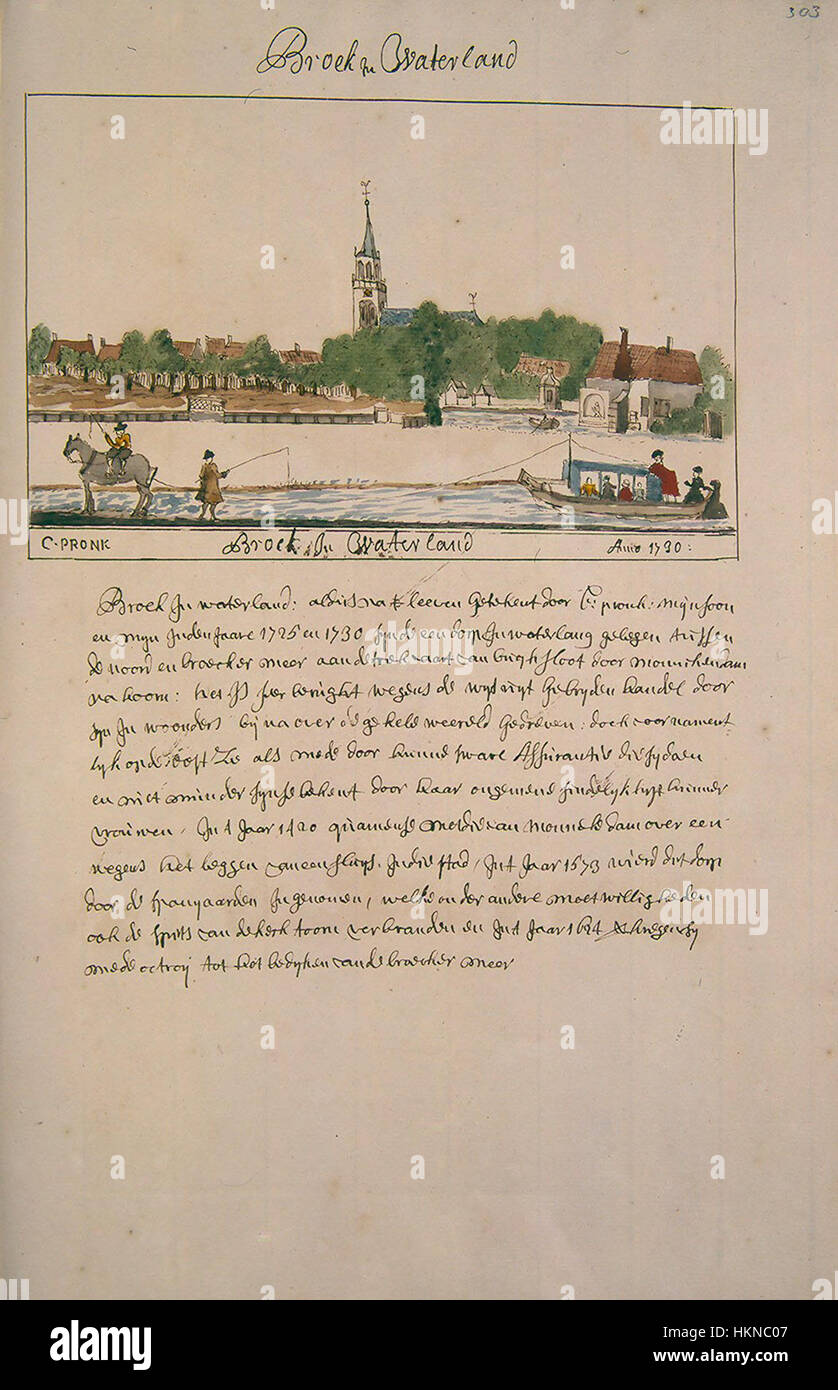 303
Broek in Waterland
C. PRONK Broek. In Waterland Anno 1730:
Broek In waterland: aldus na t leeven getekent door C: pronk: Mijn soon
en mijn In den Jaare 1725 en 1730 sijnde een dorp In waterland gelegen tussen
de noord en broecker meer aan de trek vaart van buijksloot door monnickendam
na hoorn: het Is seer berught wegens de wijd uijt gebrijden handel door
sijn In woonders bij na over de gehele weereld gedreven: doch voornament
lijk op de oost Zee als mede door hunne sware Assurantie die sij daen
en niet minder sijnse bekent door haar ongemene sindelijkhijt hunner
vrouwen, In t Jaar 1420 quamense met die van Monnekedam over een
wegens het leggen van een sluijs In die stad, In t Jaar 1573 wierd dit dorp
door de spanjaarden Ingenomen, welke onder andere moetwilligheden
ook de spits van de kerk toorn verbranden en In t Jaar 1624 kregen sij
mede octroij tot het bedijken van de broecker meer
alamy
Image ID: HKNC07
www.alamy.com